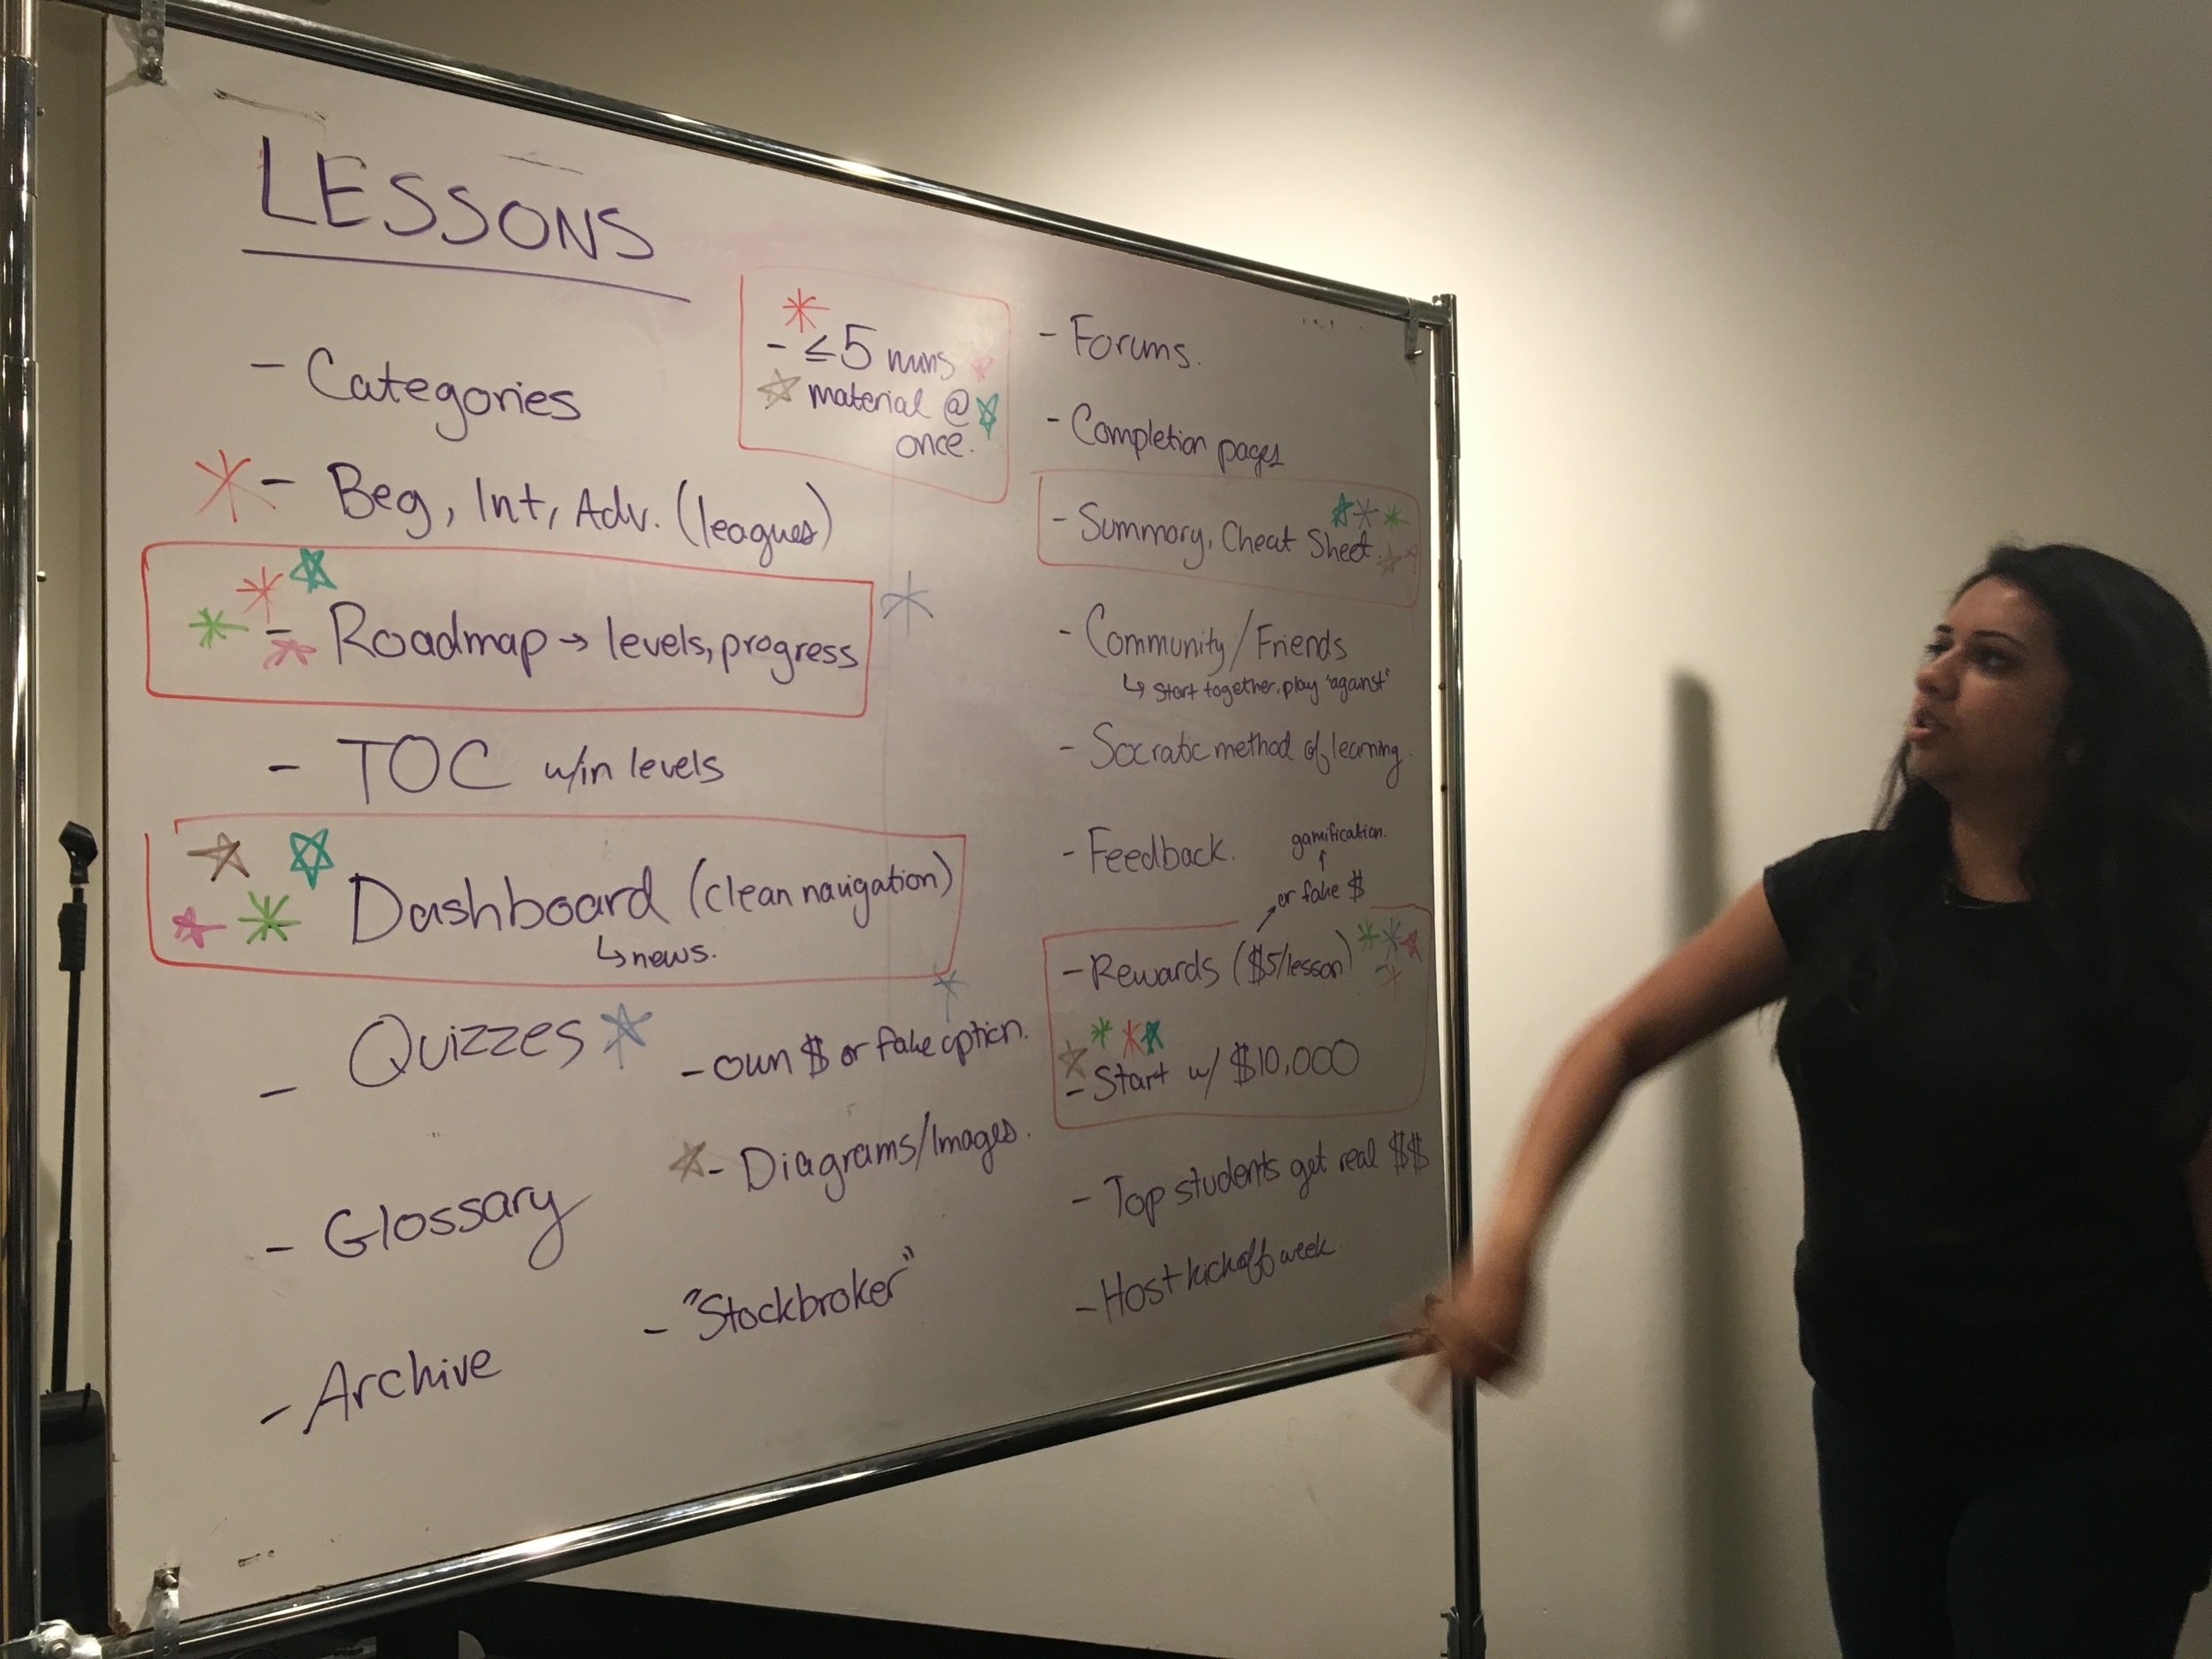 LESSONS
- Categories
- Beg, Int, Adv. (leagues)
- Roadmap → levels, progress
- TOC w/in levels
Dashboard (clean navigation)
↳ news.
- Quizzes
- Glossary
- Archive
- ≤5 mins
material @
once.
- own $ or fake option.
- Diagrams/Images.
- "Stockbroker"
- Forums.
- Completion pages
- Summary, Cheat Sheet
- Community/Friends
↳ Start together, play "against"
- Socratic method of learning.
- Feedback.
gamification.
↑
or fake $
- Rewards ($5/lesson)
- Start w/ $10,000
- Top students get real $$
- Host kickoff week